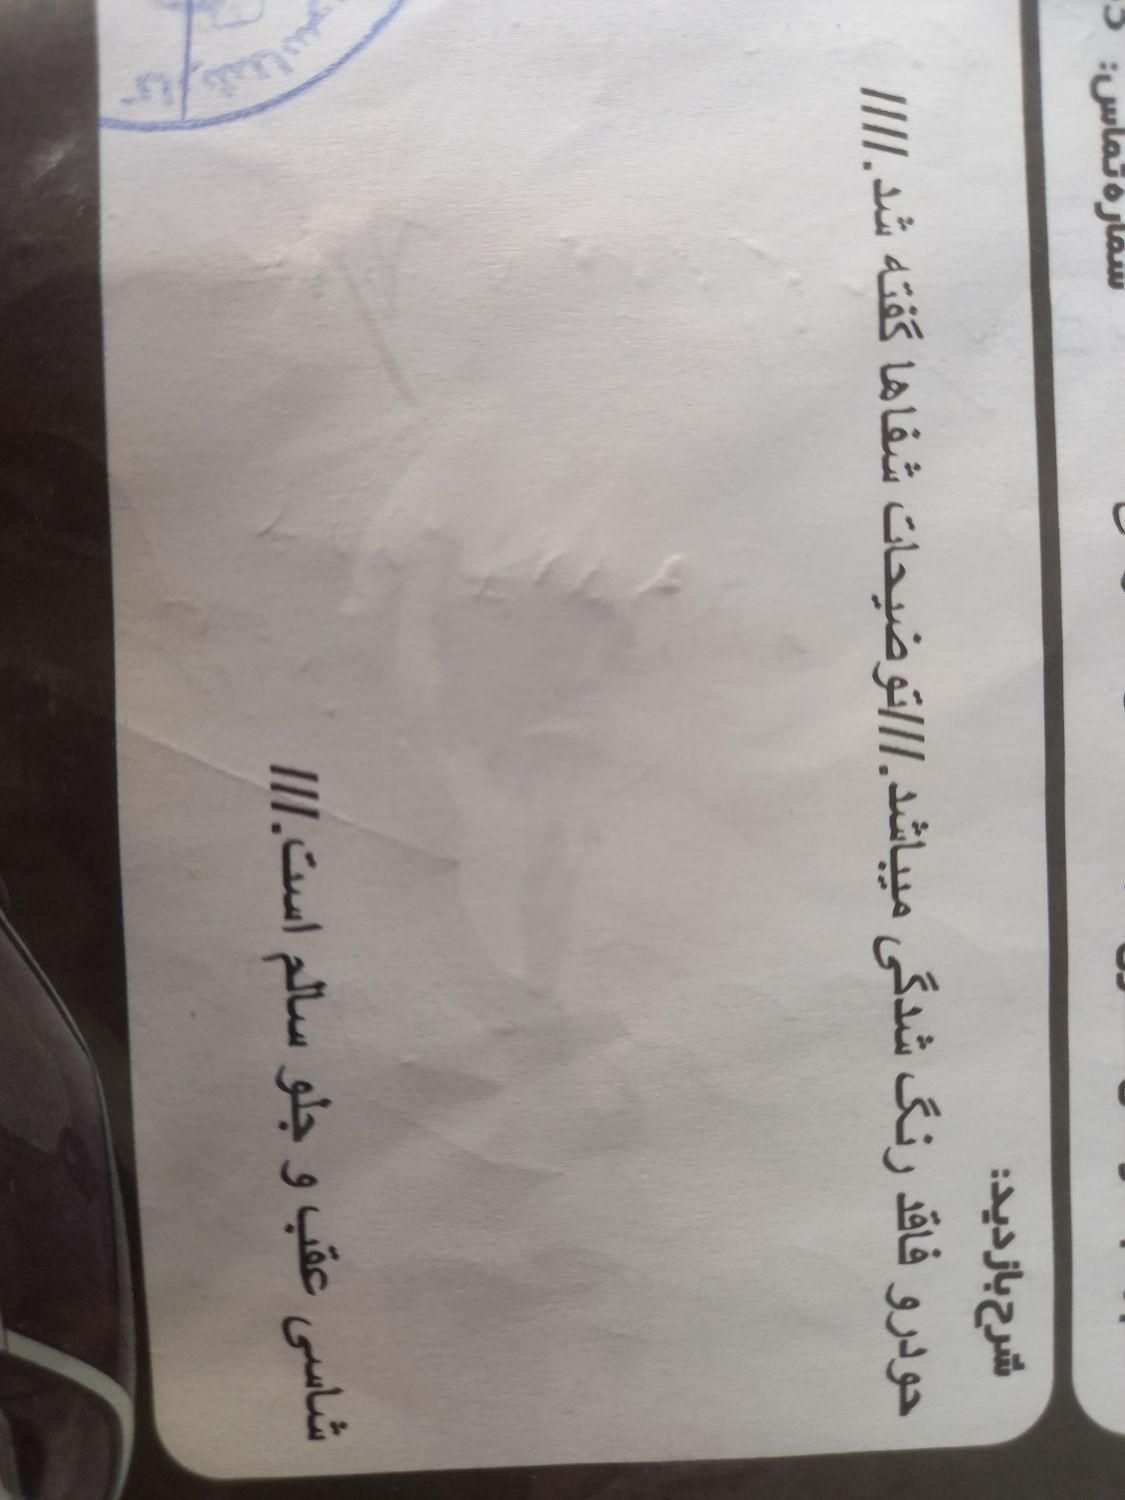 شماره تماس:
شرح بازدید:
حودرو فاقد رنگ شدگی میباشد.///توضیحات شفاها گفته شد./////
شاسی عقب و جلو سالم است.////